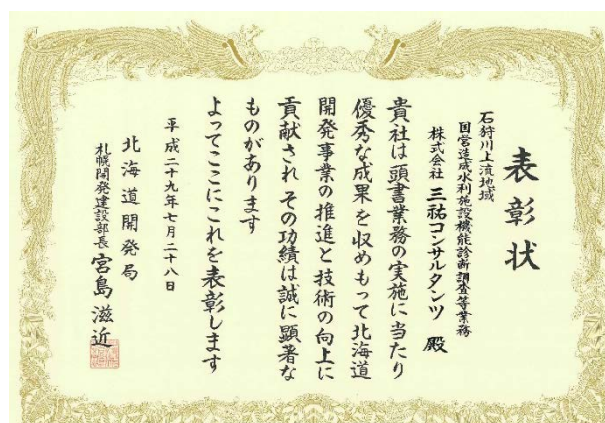 表彰状
石狩川上流地域
国営造成水利施設機能診断調査等業務
株式会社 三祐コンサルタンツ 殿
貴社は頭書業務の実施に当たり
優秀な成果を収めもって北海道
開発事業の推進と技術の向上に
貢献され その功績は誠に顕著な
ものがあります
よってここにこれを表彰します
平成二十九年七月二十八日
北海道開発局
札幌開発建設部長 宮島滋近